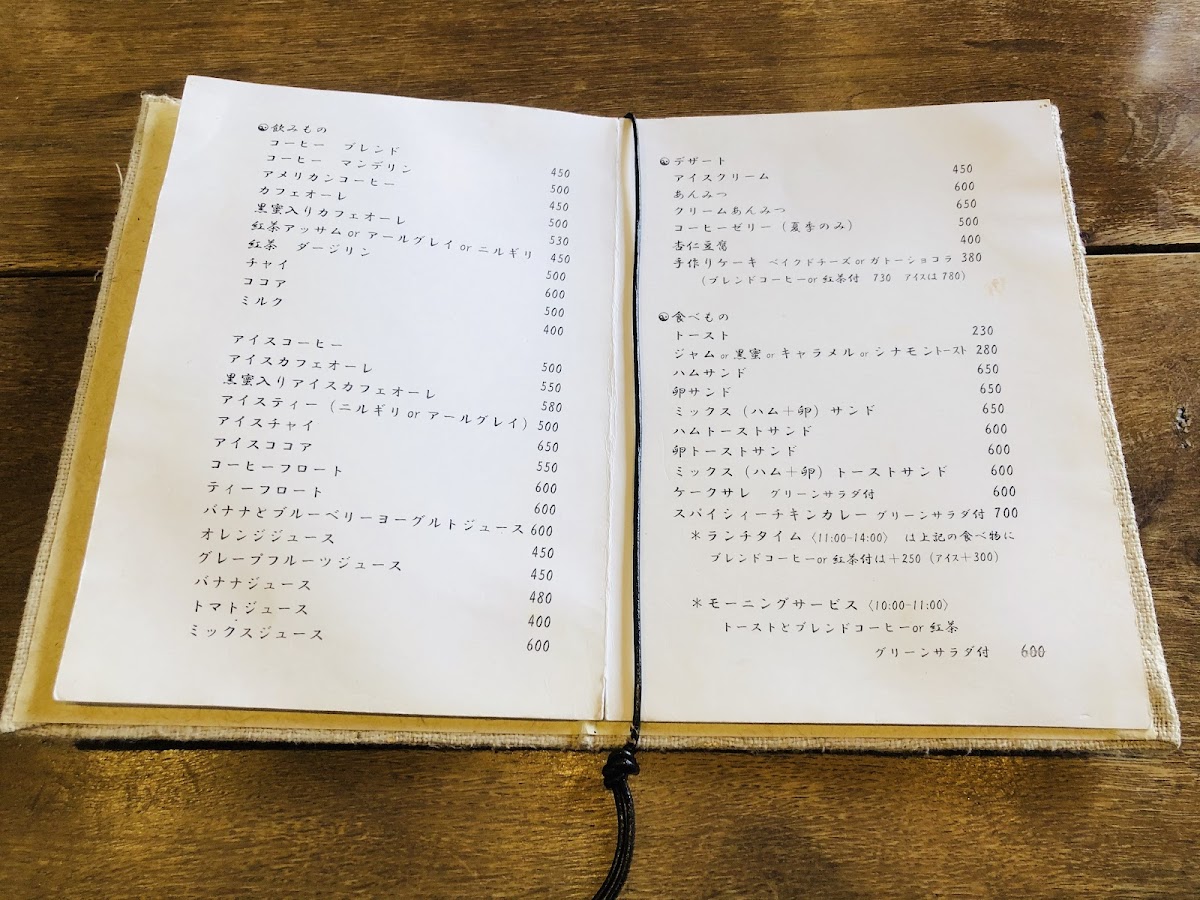 ☯飲みもの
コーヒー ブレンド 450
コーヒー マンデリン 500
アメリカンコーヒー 450
カフェオーレ 500
黒蜜入りカフェオーレ 530
紅茶アッサム or アールグレイ or ニルギリ 450
紅茶 ダージリン 500
チャイ 600
ココア 500
ミルク 400
アイスコーヒー 500
アイスカフェオーレ 550
黒蜜入りアイスカフェオーレ 580
アイスティー（ニルギリ or アールグレイ） 500
アイスチャイ 650
アイスココア 550
コーヒーフロート 600
ティーフロート 600
バナナとブルーベリーヨーグルトジュース 600
オレンジジュース 450
グレープフルーツジュース 450
バナナジュース 480
トマトジュース 400
ミックスジュース 600
☯デザート
アイスクリーム 450
あんみつ 600
クリームあんみつ 650
コーヒーゼリー（夏季のみ） 500
杏仁豆腐 400
手作りケーキ ベイクドチーズ or ガトーショコラ 380
（ブレンドコーヒー or 紅茶付 730 アイスは 780）
☯食べもの
トースト 230
ジャム or 黒蜜 or キャラメル or シナモントースト 280
ハムサンド 650
卵サンド 650
ミックス（ハム＋卵）サンド 650
ハムトーストサンド 600
卵トーストサンド 600
ミックス（ハム＋卵）トーストサンド 600
ケークサレ グリーンサラダ付 600
スパイシィーチキンカレー グリーンサラダ付 700
＊ランチタイム〈11:00-14:00〉 は上記の食べ物に
ブレンドコーヒー or 紅茶付は＋250（アイス＋300）
＊モーニングサービス〈10:00-11:00〉
トーストとブレンドコーヒー or 紅茶
グリーンサラダ付 600